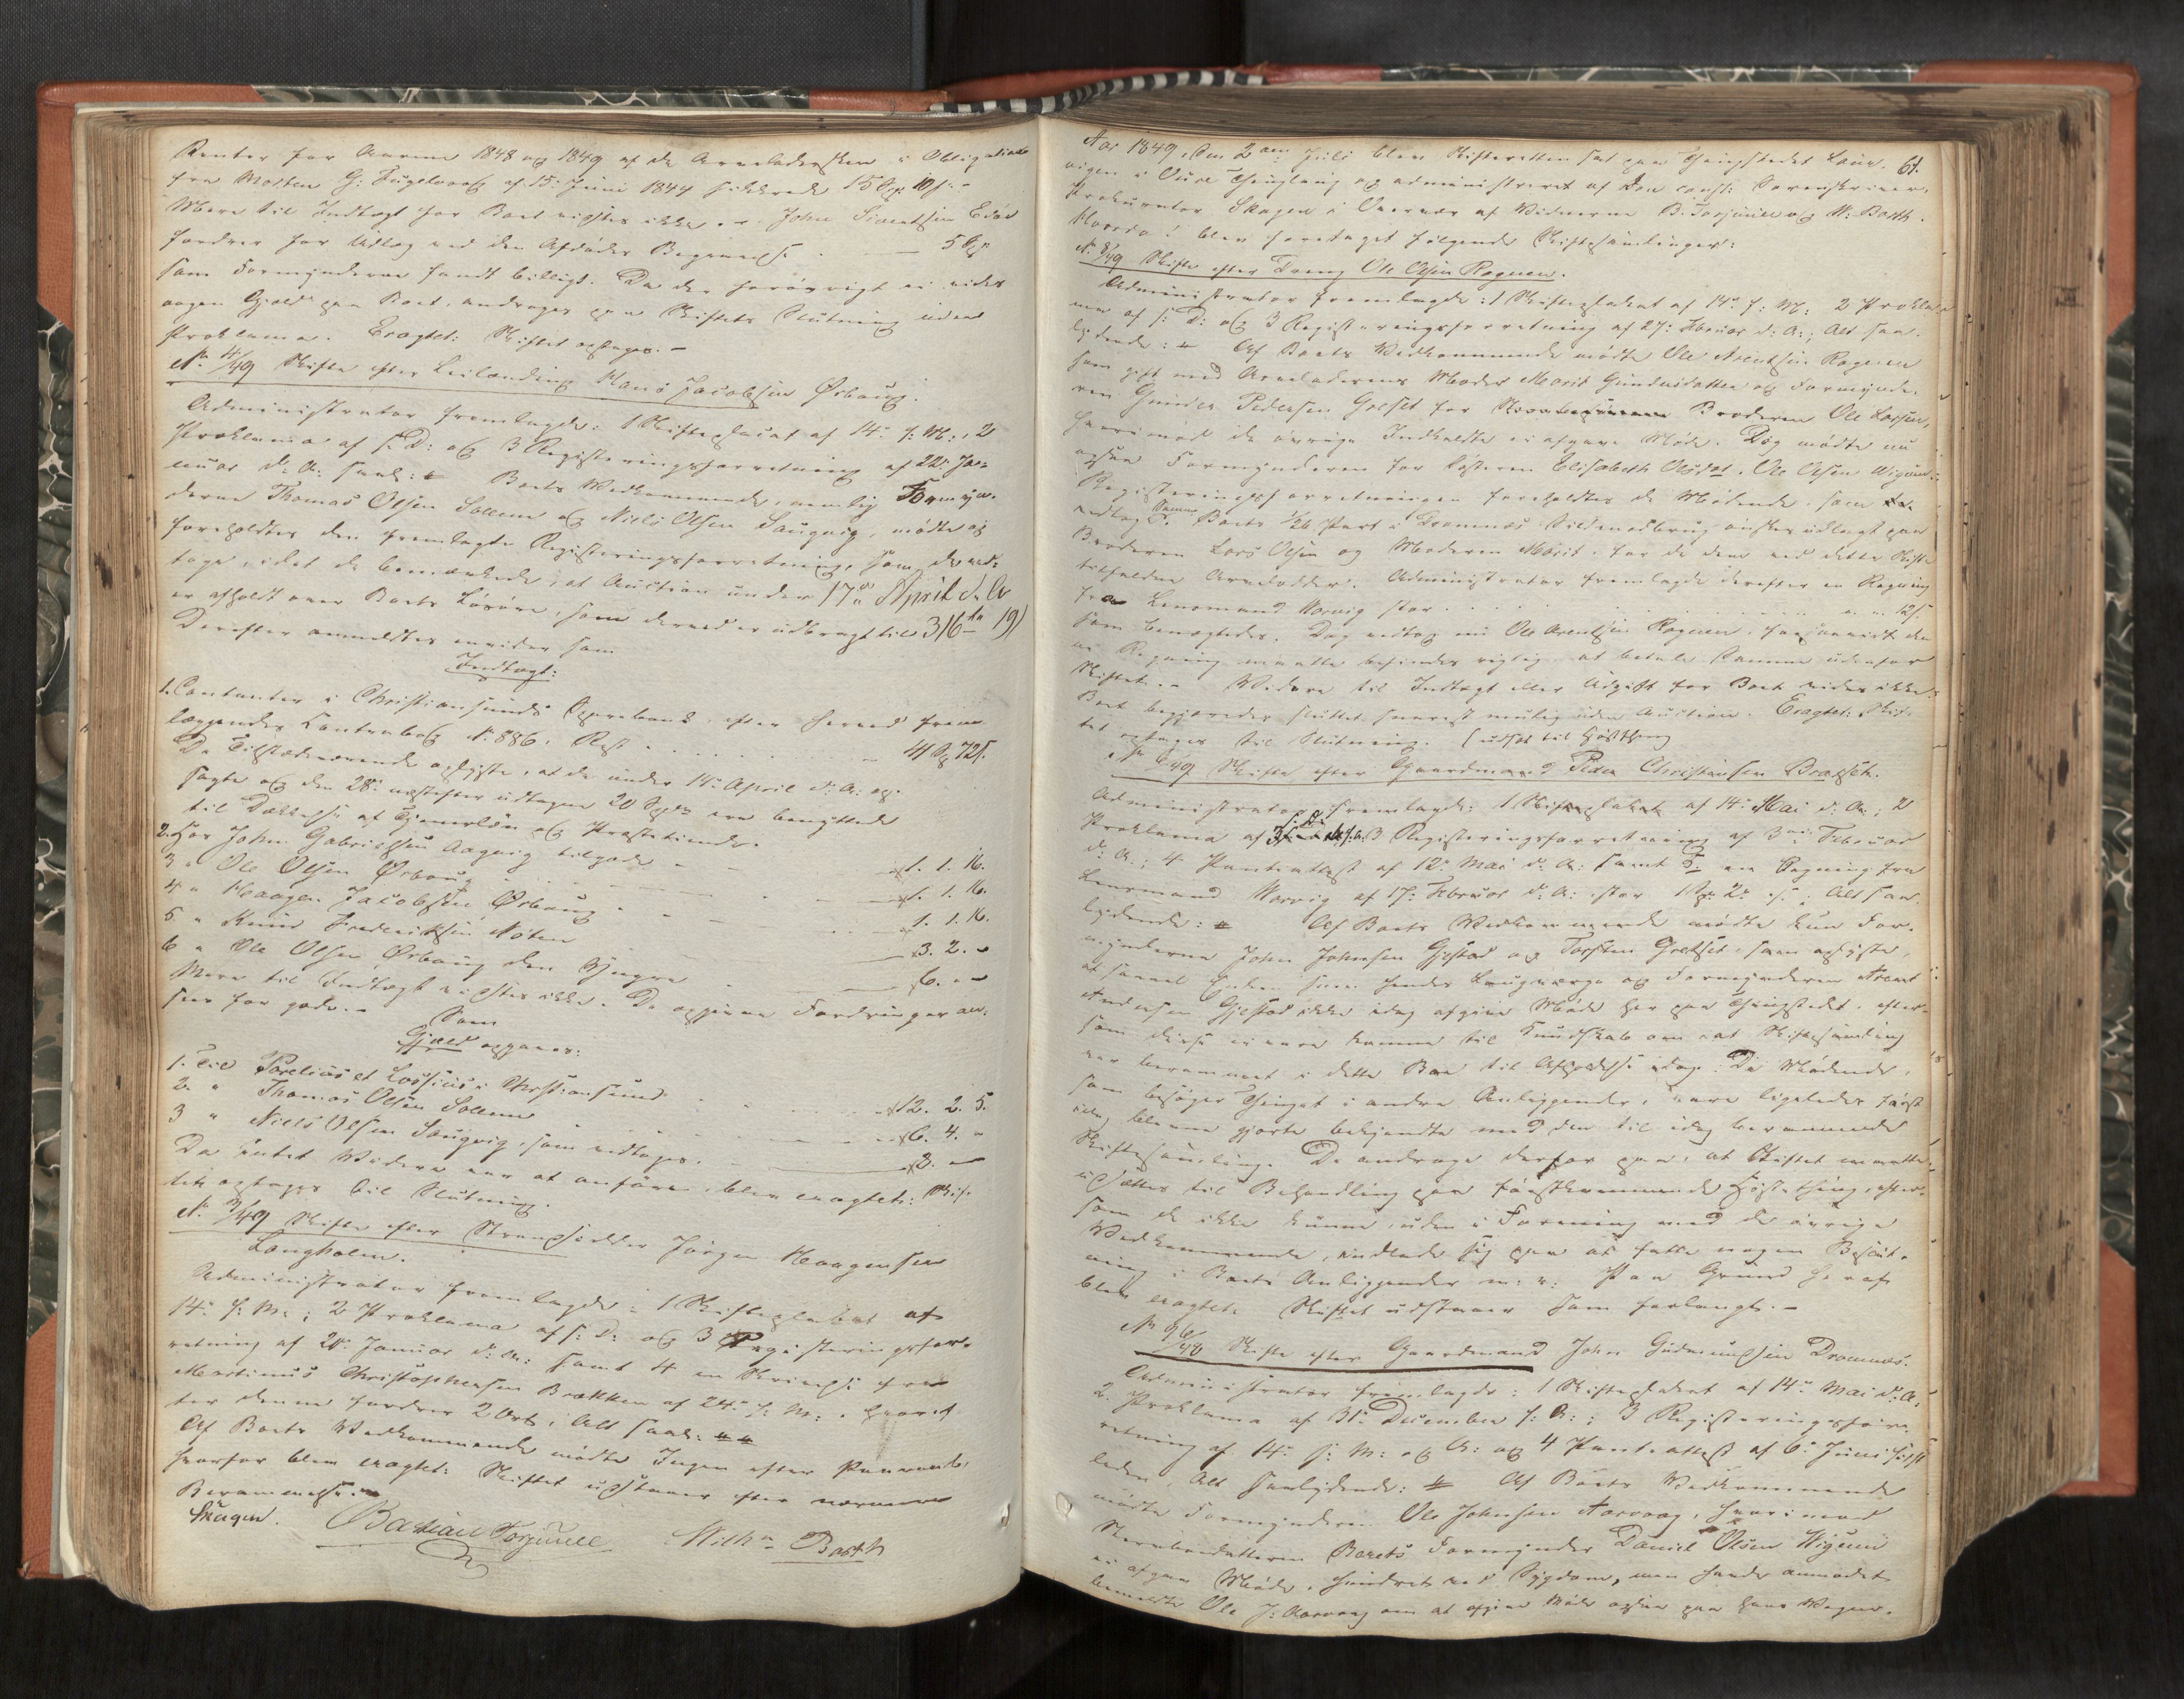 Renter for Aarene 1848 og 1849 af de Arveladersken i Obligation
fra Morten G: Fugelvaag af 15: Juni 1844 sikkrede 15 Sp: 10 s:-
Mere til Indtægt for Boet vistes ikke. John Sivertsen Edøe
fordrer for Udlæg ved den Afdødes Begravelse . — 5 Sp:
som Formynderne fandt billigt. Da der forøvrigt ei vides
nogen Gjæld paa Boet, androges paa Skiftets Slutning uden
Proklama. Eragtet: Skiftet optages.-
No 4/49 Skifte efter Leilænding Hans Jacobsen Ørbaug.
Administrator fremlagde: 1 Skifteplacat af 14: f: M:, 2
Proklama af s: D: og 3 Registeringsforretning af 22: Ja-
nuar d: A: saal: Boets Vedkommende, nemlig Formyn-
derne Thomas Olsen Sollem og Niels Olsen Saugvig, mødte og
foreholdtes den fremlagte Registeringsforretning, som de ved-
toge, idet de bemærkede, at Auction under 17de April d. A
er afholdt over Boets Løsøre, som derved er udbragt til 316 19
Derefter anmeldtes endvidere som
Indtægt:
1. Contanter i Christiansunds Sparebank efter herved frem-
læggendes Contrabog No 886. Rest . . . . . 41 Sp 72 s.
De Tilstedeværende oplyste, at de under 14: April d: A: op-
sagte og den 28: næstefter udtagne 20 Spd ere benyttede
til Dækkelse af Tjenerløn og Præstetiende.
2. Hos John Gabrielsen Aagvig tilgode — 1. 1. 16.
3 " Ole Olsen Ørbaug — 1. 1. 16.
4 " Haagen Jacobsen Ørbaug — 1. 1. 16.
5 " Knud Frederiksen Nøten — 3. 2. -
6 " Ole Olsen Ørbaug den Yngre — 6. - -
Mere til Indtægt vistes ikke. De opgivne Fordringer an-
sees for gode.- Som
Gjæld opgaves:
1. Til Parelius et Lossius i Christiansund . . . 12. 2. 5.
2. " Thomas Olsen Sollem . . . 6. 4. -
3 " Niels Olsen Saugvig, som vedtoges. — 2. -
Da Intet Videre var at anføre, blev eragtet: Skif-
tet optages til Slutning.
No 7/49 Skifte efter Strandsidder Jørgen Haagensen
Langholm.
Administrator fremlagde: 1 Skifteplakat af
14: f: M:; 2 Proklama af s: D: og 3 Registeringsfor-
retning af 20: Januar d: A: samt 4 en Skrivelse fra
Martinus Christophersen Brækken af 24: f: M:, hvoref-
ter denne fordrer 2 Ort, Alt saal:
Af Boets Vedkommende mødte Ingen efter Paaraab,
hvorfor blev eragtet: Skiftet udstaaer efter nærmere
Berammelse.
Skagen. Bastian Torjuul Wilhm Barth
Aar 1849, den 2den Juli blev Skifteretten sat paa Thingstedet Laur- 61.
vigen i Aure Thinglaug og administreret af Den const: Sorenskriver,
Prokurator Skagen i Overvær af Vidnerne B. Torjuul og W. Barth.
Hvorda blev foretaget følgende Skiftesamlinger:
No 8/49 Skifte efter Dreng Ole Olsen Rognen.
Administrator fremlagde: 1 Skifteplakat af 14: f: M: 2 Prokla-
ma af s: D: og 3 Registeringsforretning af 27: Februar d: A:, Alt saa-
lydende: Af Boets Vedkommende mødte Ole Arentsen Rognen
som gift med Arveladerens Moder Marit Gundersdatter og Formynde-
ren Gunder Pedersen Gresset for Broderen Ole Larsen,
hvorimod de øvrige Indkaldte ei afgave Møde. Dog mødte nu
ogsaa Formynderen for Søsteren Elisabeth Olsdat. Ole Olsen Wigum.
Registeringsforretningen foreholdtes de Mødende, som
vedtog Samme. Boets 1/26 Part i Dromnes Sildenodbrug ønskes udlagt paa
Broderen Lars Olsen og Moderen Marit for de dem ved dette Skifte
tilfaldne Arvelodder. Administrator fremlagde derefter en Regning
fra Lensmand Worvig stor . . . . . . . . . . . 12 s.
som benægtedes. Dog vedtog nu Ole Arentsen Rognen, forsaavidt den-
ne Regning maatte befindes rigtig, at betale Samme udenfor
Skiftet.- Videre til Indtægt eller Udgift for Boet vides ikke.
Boet begjæredes sluttet snarest mulig uden Auction. Eragtet: Skif-
tet optages til Slutning. (udsat til Høstthing
No 6/49 Skifte efter Gaardmand Peder Christiansen Brasset.
Administrator fremlagde: 1 Skifteplakat af 14: Mai d: A:, 2
Proklama af s: D: 3 Registeringsforretning af 3die Februar
d: A:; 4 Panteattest af 12: Mai d: A: samt 5: en Regning fra
Lensmand Worvig af 17: Februar d: A: stor 1 Sp: 2: s:; Alt saa-
lydende: Af Boets Vedkommende mødte kun For-
mynderne John Johnsen Gjestad og Torsten Gresset, som oplyste,
at saavel Enken som hendes Laugværge og Formynderen Arent
Andersen Gjestad ikke idag afgive Møde her paa Thingstedet, efter-
som disse ei vare komne til Kundskab om, at Skiftesamling
var berammet i dette Boe til Afholdelse idag. De Mødende,
som besøger Thinget i andre Anliggender, vare ligeledes først
idag blevne gjorte bekjendte med den til idag berammede
Skiftesamling. De androge derfor paa, at Skiftet maatte
udsættes til Behandling paa førstkommende Høstething, efter-
som de ikke kunne, uden i Forening med de øvrige
Vedkommende, indlade sig paa at fatte nogen Beslut-
ning i Boets Anliggender m: v: Paa Grund heraf
blev eragtet: Skiftet udstaaer som forlangt.-
No 96/48 Skifte efter Gaardmand John Gudmundsen Dromnes.
Administrator fremlagde: 1 Skifteplakat af 14: Mai d: A:
2. Proklama af 31: December f: A:; 3 Registeringsfor-
retning af 14: s: M: og A: og 4 Panteattest af 6: Juni sidst-
leden, Alt saalydende: Af Boets Vedkommende
mødte Formynderen Ole Johnsen Aarvaag, hvorimod
Steendatteren Berets Formynder Daniel Olsen Wigum
ei afgav Møde, hindret ved Sygdom, men havde anmodet
bemeldte Ole J: Aarvaag om at afgive Møde ogsaa paa hans Vegne.